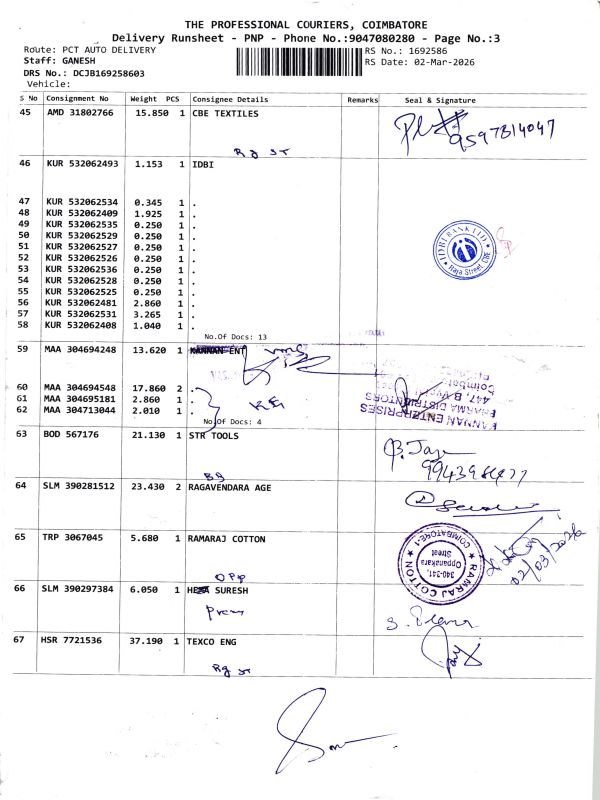 THE PROFESSIONAL COURIERS, COIMBATORE
Delivery Runsheet - PNP - Phone No.:9047080280 - Page No.:3
Route: PCT AUTO DELIVERY
Staff: GANESH
DRS No.: DCJB169258603
Vehicle:
RS No.: 1692586
RS Date: 02-Mar-2026
S No Consignment No Weight PCS Consignee Details Remarks Seal & Signature
45 AMD 31802766 15.850 1 CBE TEXTILES
9597814047
Rg ST
46 KUR 532062493 1.153 1 IDBI
47 KUR 532062534 0.345 1 .
48 KUR 532062409 1.925 1 .
49 KUR 532062535 0.250 1 .
50 KUR 532062529 0.250 1 .
51 KUR 532062527 0.250 1 .
52 KUR 532062526 0.250 1 .
53 KUR 532062536 0.250 1 .
54 KUR 532062528 0.250 1 .
55 KUR 532062525 0.250 1 .
56 KUR 532062481 2.860 1 .
57 KUR 532062531 3.265 1 .
58 KUR 532062408 1.040 1 .
IDBI BANK LTD
Raja Street, CBE
No.Of Docs: 13
59 MAA 304694248 13.620 1 KANNAN ENT
60 MAA 304694548 17.860 2 .
61 MAA 304695181 2.860 1 .
62 MAA 304713044 2.010 1 .
KG
No.Of Docs: 4
KANNAN ENTERPRISES
PHARMA DISTRIBUTORS
447, B
Coimbat
63 BOD 567176 21.130 1 STR TOOLS
Bg
64 SLM 390281512 23.430 2 RAGAVENDARA AGE
65 TRP 3067045 5.680 1 RAMARAJ COTTON
Opp
RAMRAJ COTTON
340-341,
Oppanakara
Street
COIMBATORE-1
02/03/2026
66 SLM 390297384 6.050 1 HEMA SURESH
67 HSR 7721536 37.190 1 TEXCO ENG
Rg ST